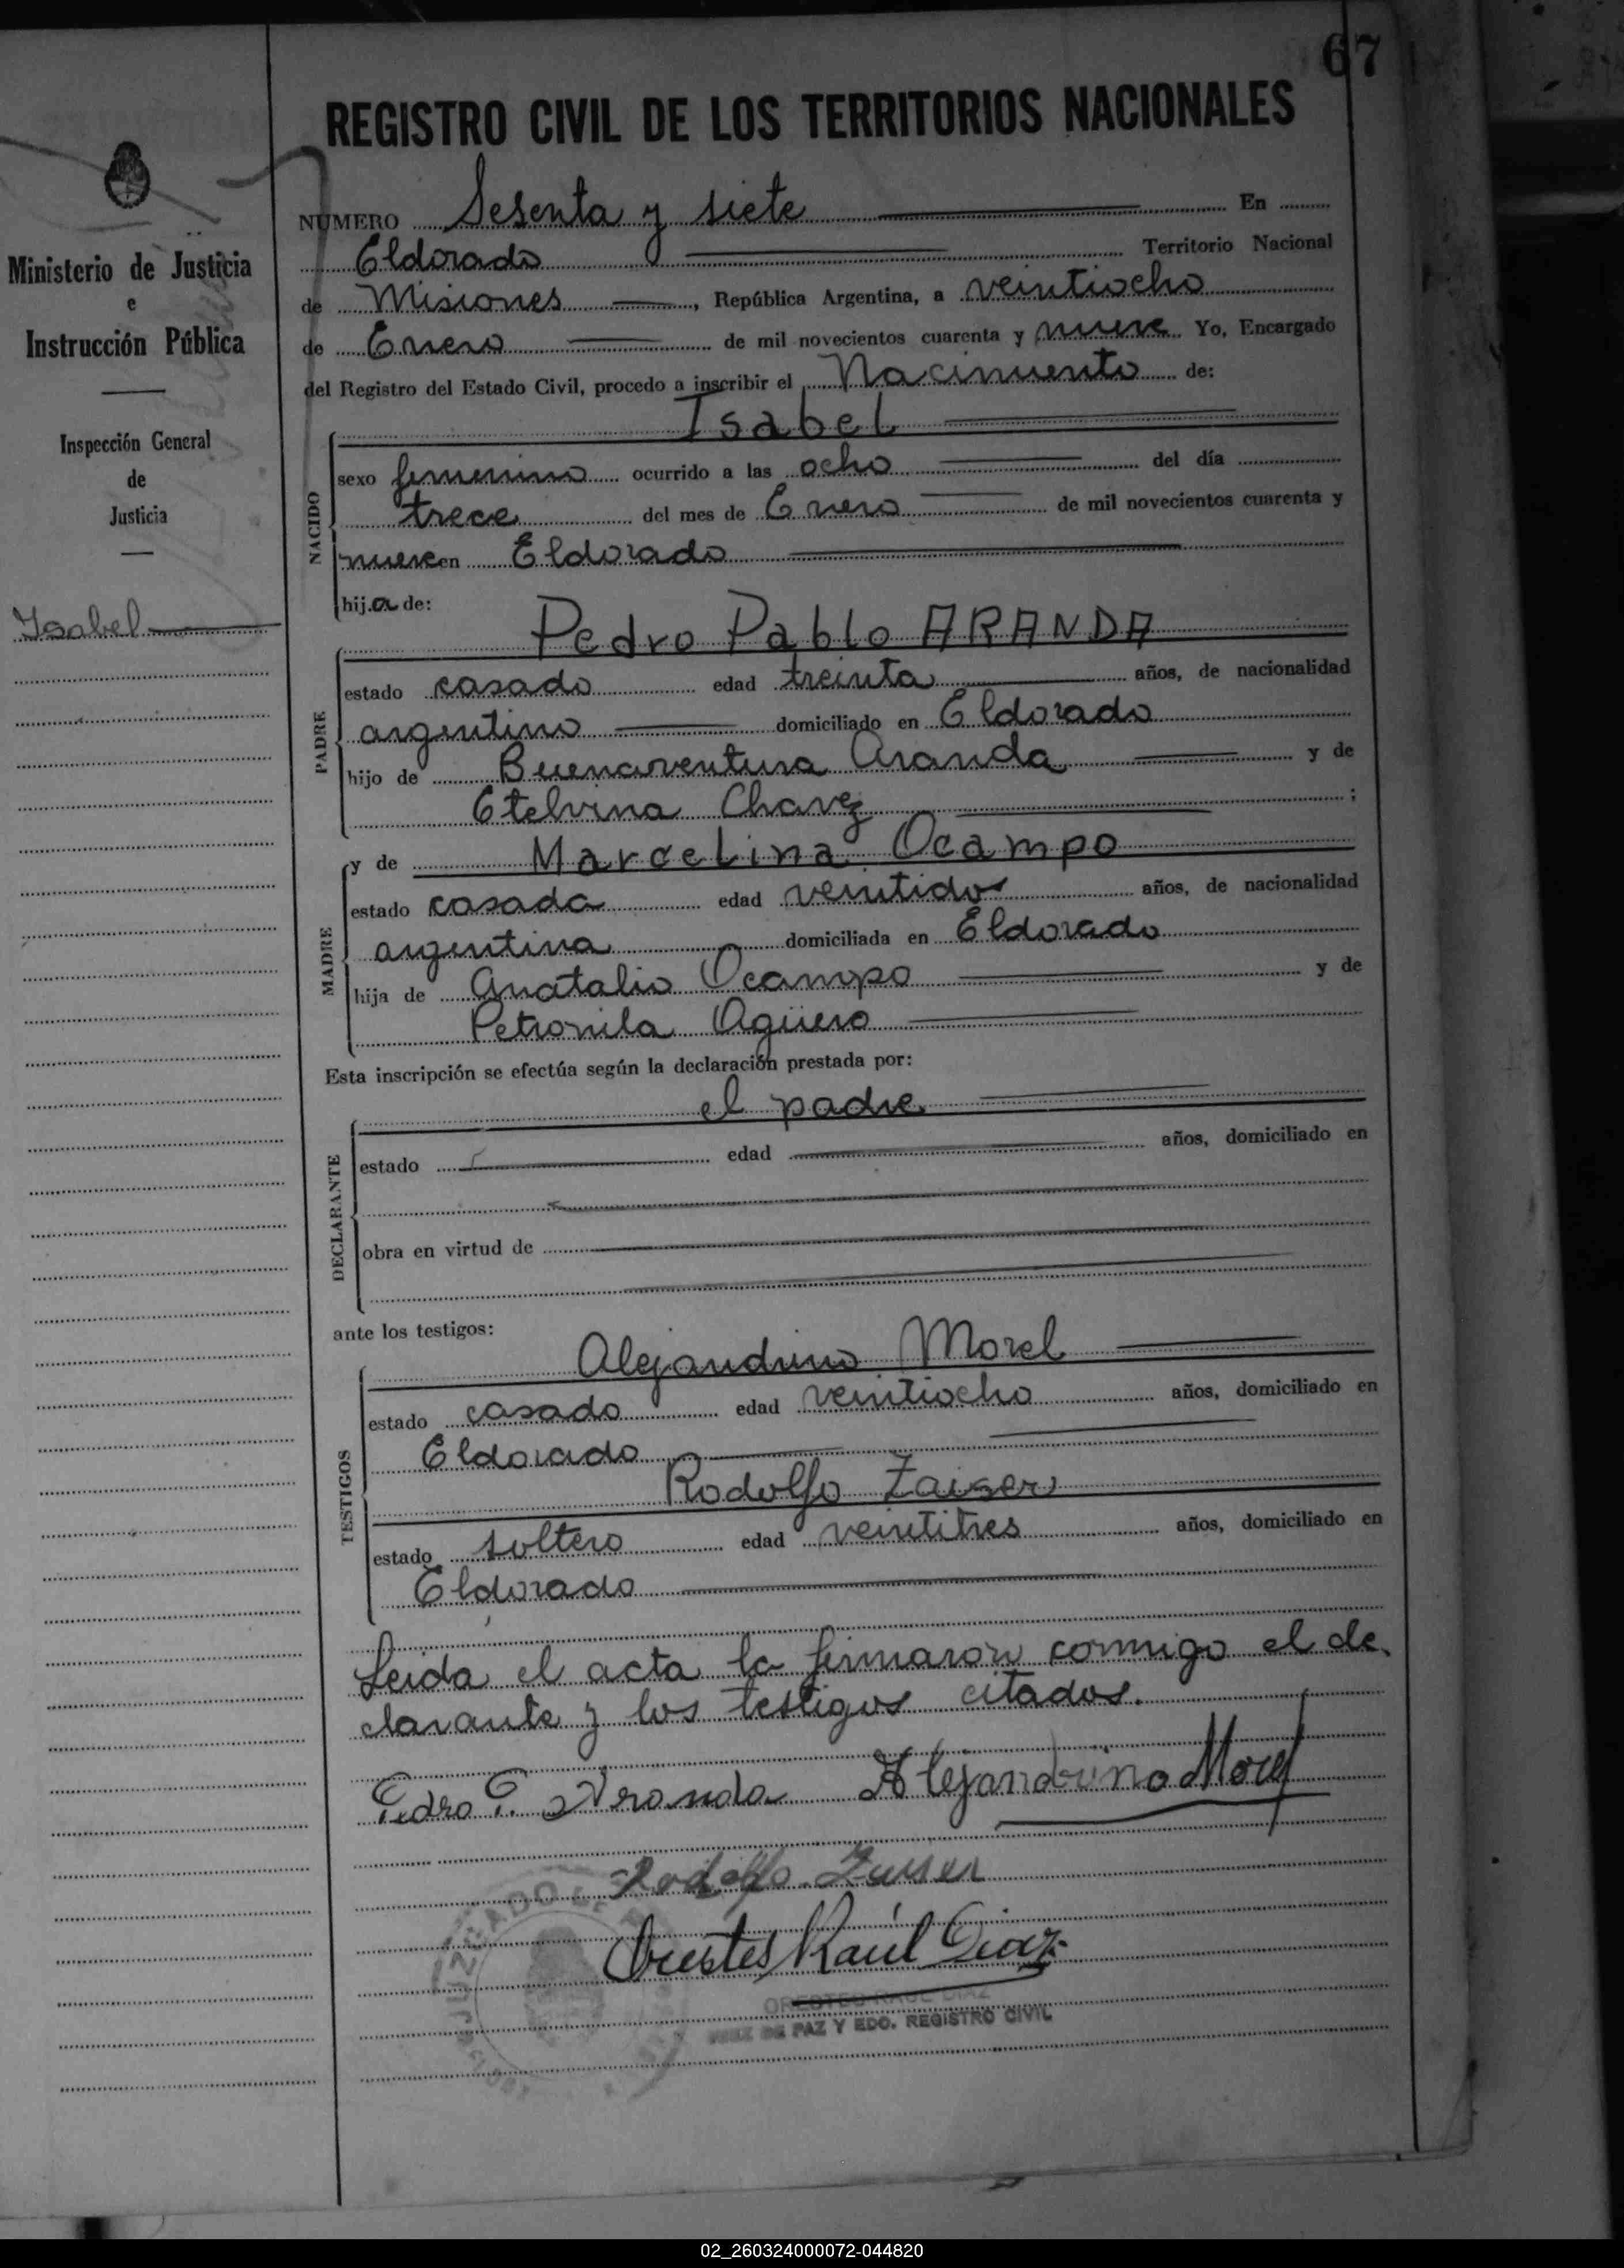 67
REGISTRO CIVIL DE LOS TERRITORIOS NACIONALES
Ministerio de Justicia
e
Instrucción Pública
Inspección General
de
Justicia
Isabel
NUMERO Sesenta y siete En
Eldorado Territorio Nacional
de Misiones, República Argentina, a veintiocho
de Enero de mil novecientos cuarenta y nueve Yo, Encargado
del Registro del Estado Civil, procedo a inscribir el Nacimiento de:
NACIDO
Isabel
sexo femenino ocurrido a las ocho del día
trece del mes de Enero de mil novecientos cuarenta y
nueve en Eldorado
hija de:
PADRE
Pedro Pablo ARANDA
estado casado edad treinta años, de nacionalidad
argentino domiciliado en Eldorado
hijo de Buenaventura Aranda y de
Etelvina Chavez ;
MADRE
y de Marcelina Ocampo
estado casada edad veintidos años, de nacionalidad
argentina domiciliada en Eldorado
hija de Anatalio Ocampo y de
Petronila Agüero
Esta inscripción se efectúa según la declaración prestada por:
DECLARANTE
el padre
estado edad años, domiciliado en
obra en virtud de
ante los testigos:
TESTIGOS
Alejandrino Morel
estado casado edad veintiocho años, domiciliado en
Eldorado
Rodolfo Zaiser
estado soltero edad veintitres años, domiciliado en
Eldorado
Leida el acta la firmaron conmigo el de-
clarante y los testigos citados.
Pedro P. Aranda Alejandrino Morel
Rodolfo Zaiser
Orestes Raúl Diaz
ORESTES RAUL DIAZ
JUEZ DE PAZ Y EDO. REGISTRO CIVIL
02_260324000072-044820